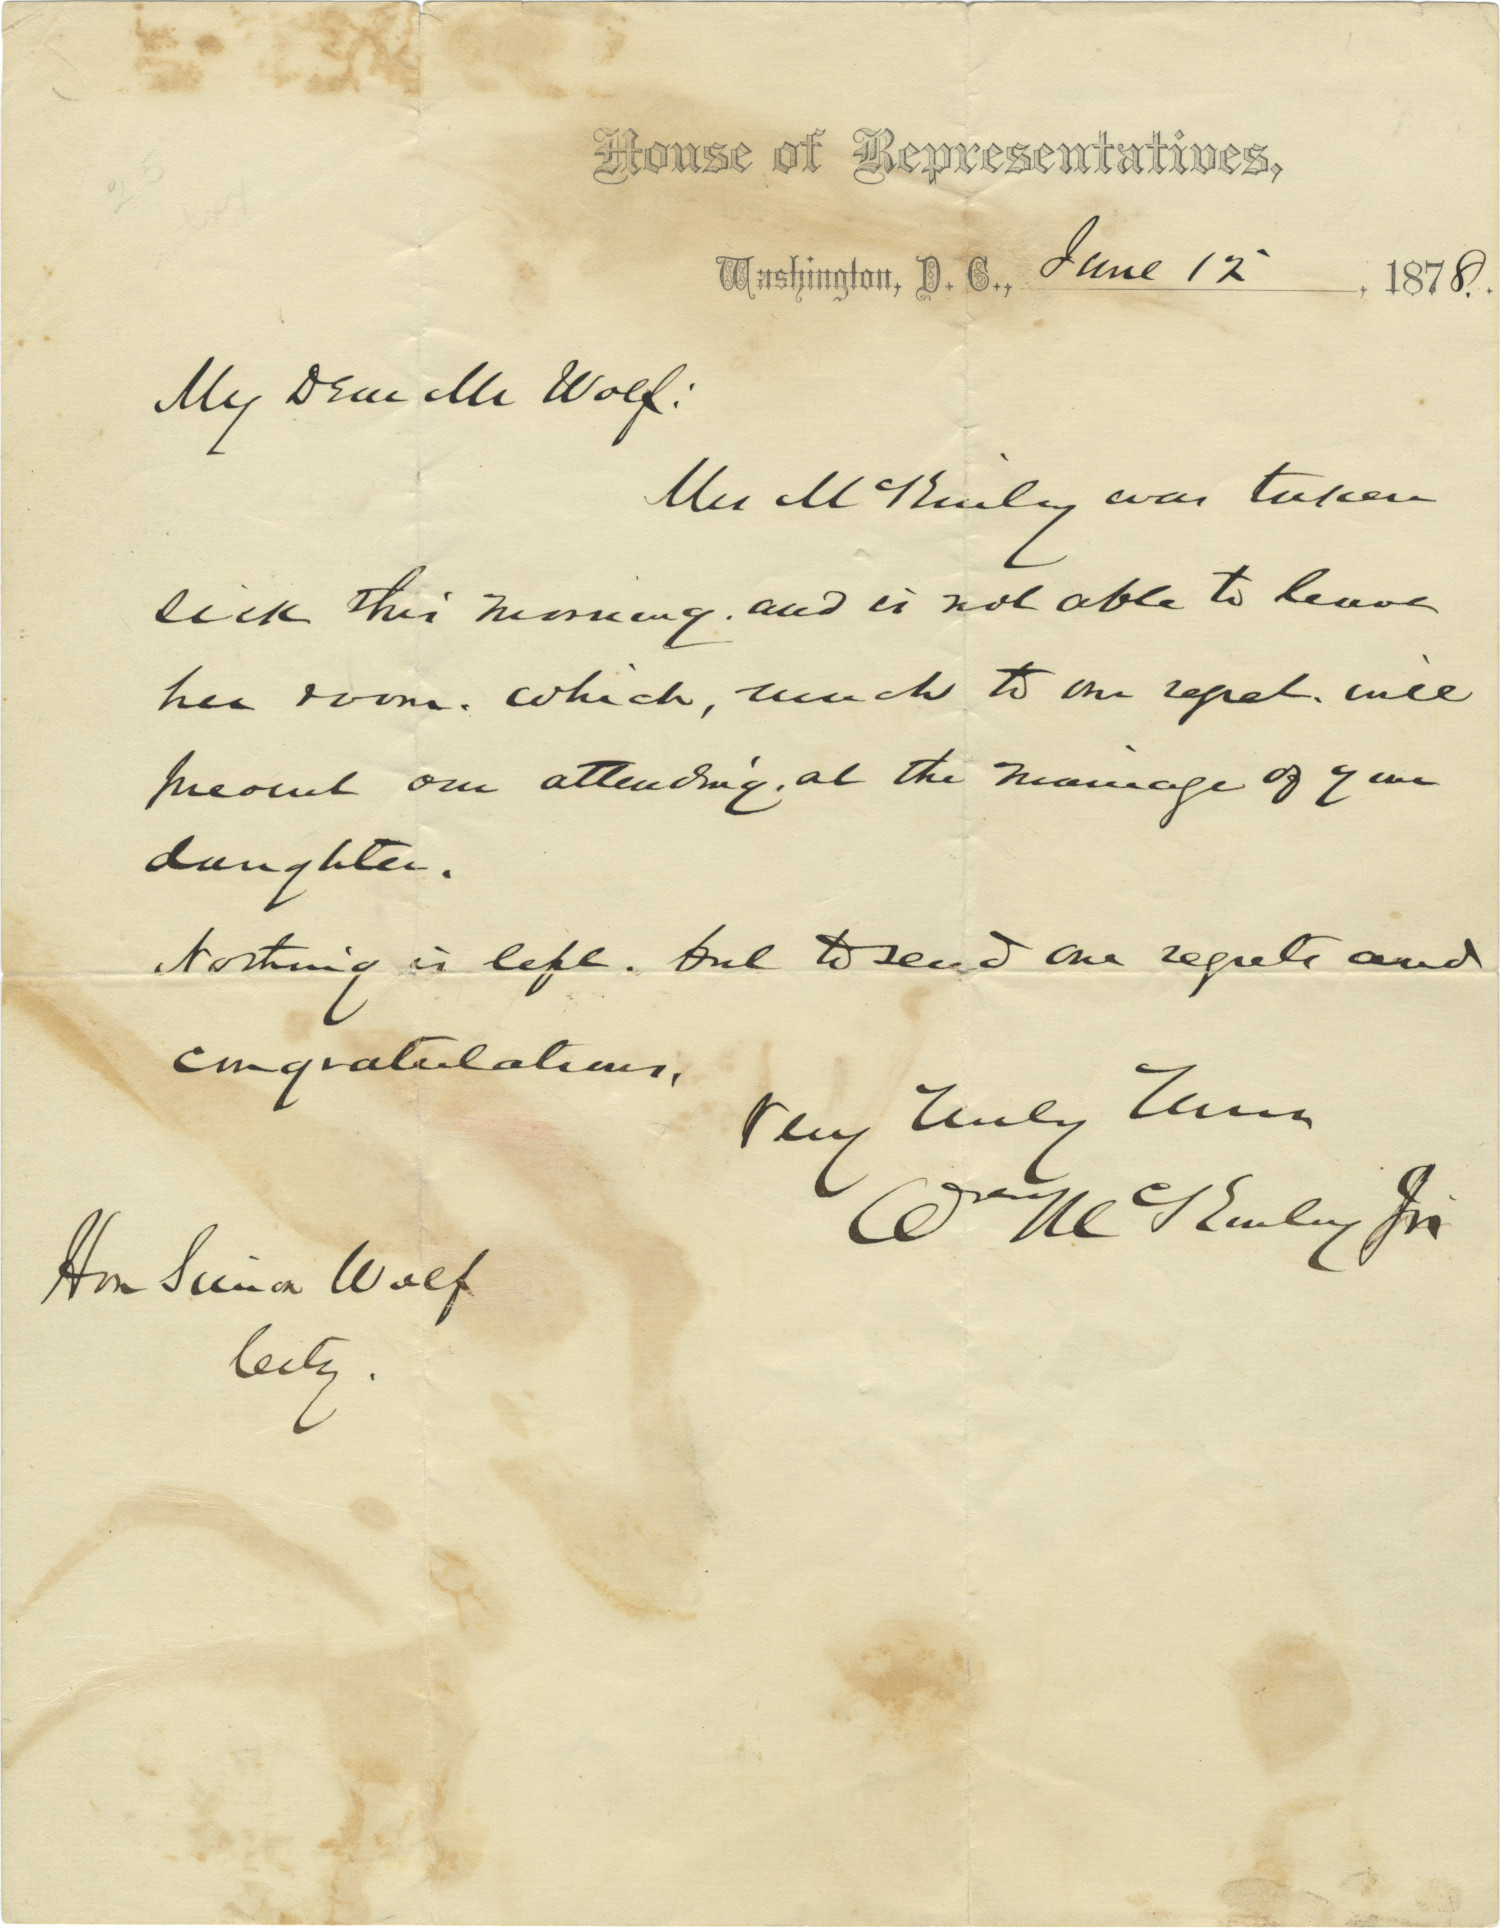 House of Representatives,
Washington, D. C., June 12, 1878.
My Dear Mr Wolf:
Mrs McKinley was taken
sick this morning. and is not able to leave
her room. which, much to our regret. will
prevent our attending. at the marriage of your
daughter.
Nothing is left. but to send our regrets and
congratulations,
Very Truly Yours
Wm McKinley Jr
Hon Simon Wolf
City.